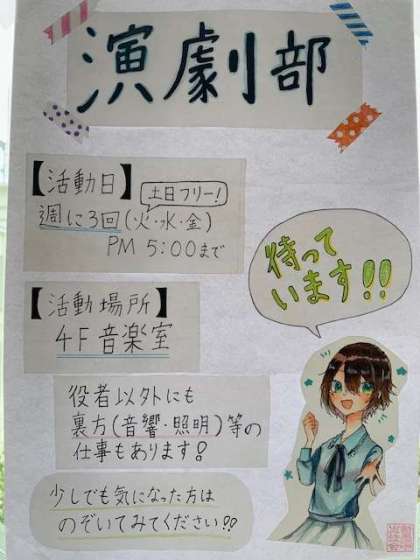 演劇部
【活動日】
土日フリー!
週に3回(火・水・金)
PM 5:00まで
待って
います!!
【活動場所】
4F 音楽室
役者以外にも
裏方(音響・照明)等の
仕事もあります!
少しでも気になった方は
のぞいてみてください!!